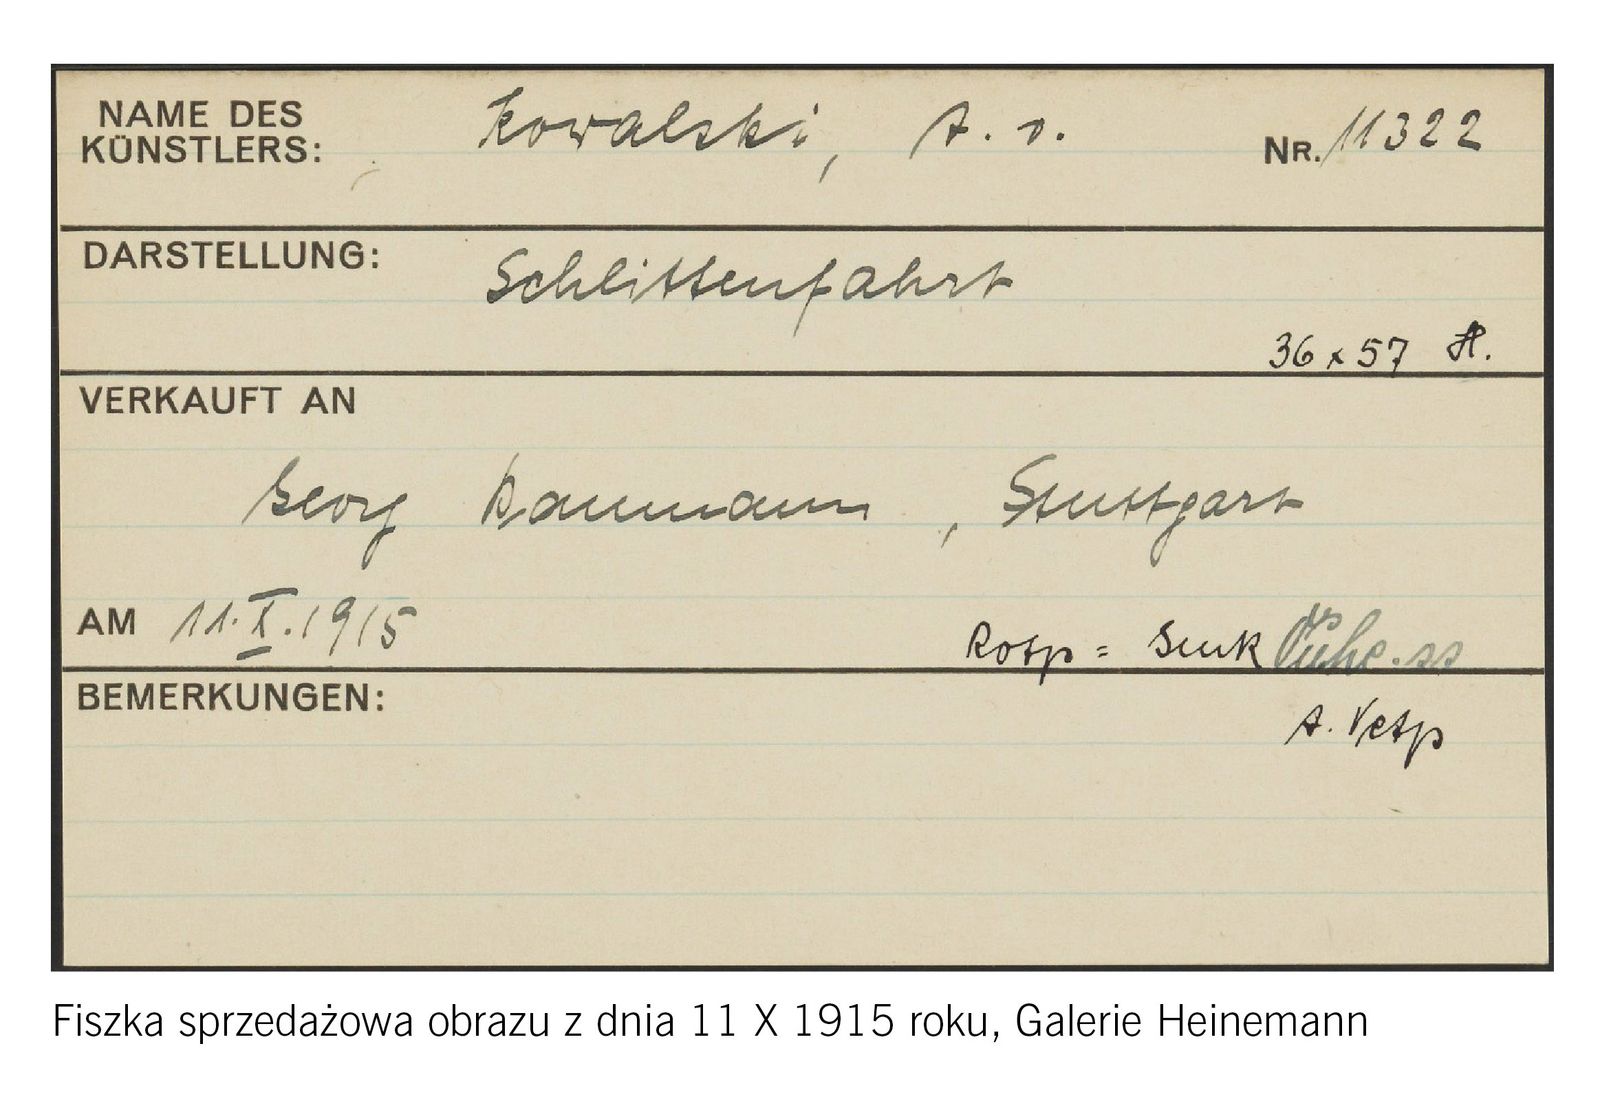 NAME DES
KÜNSTLERS: Kowalski, A. v. NR. 11322
DARSTELLUNG: Schlittenfahrt
36 x 57 H.
VERKAUFT AN
Georg Baumann, Stuttgart
AM 11.X.1915
BEMERKUNGEN:
Fiszka sprzedażowa obrazu z dnia 11 X 1915 roku, Galerie Heinemann